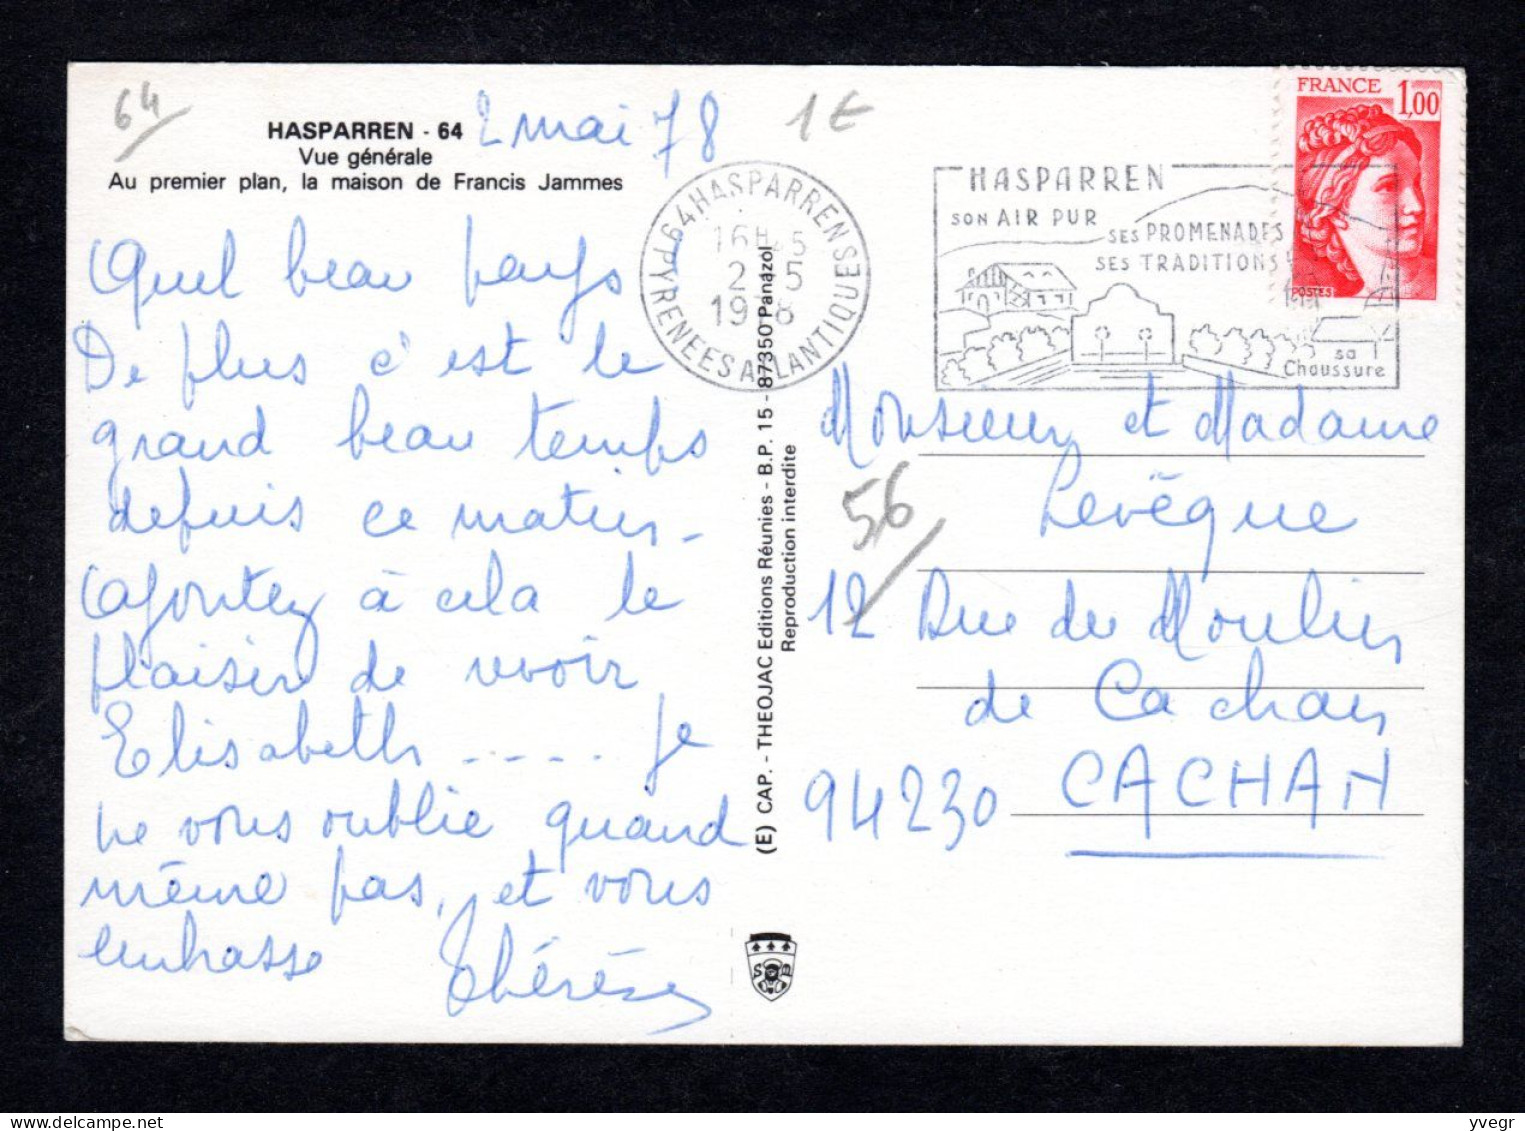 64
HASPARREN - 64
2 mai 78
1€
Vue générale
Au premier plan, la maison de Francis Jammes
Quel beau pays
De plus c'est le
grand beau temps
depuis ce matin -
Ajoutez à cela le
plaisir de revoir
Elisabeth ..... je
ne vous oublie quand
même pas, et vous
embrasse Thérèse
64 HASPARREN
PYRENEES ATLANTIQUES
16H45
2-5
1978
(E) CAP. - THEOJAC Editions Réunies - B.P. 15 - 87350 Panazol
Reproduction interdite
HASPARREN
SON AIR PUR
SES PROMENADES
SES TRADITIONS
sa
Chaussure
FRANCE 1,00
POSTES
Monsieur et Madame
Levêque
56
12 Rue du Moulin
de Cachan
94230 CACHAN
yvegr